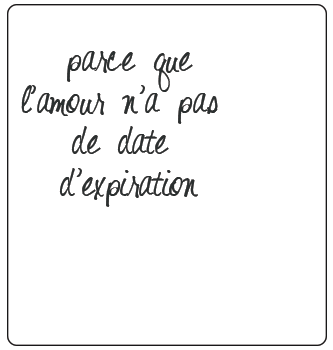 parce que
l'amour n'a pas
de date
d'expiration